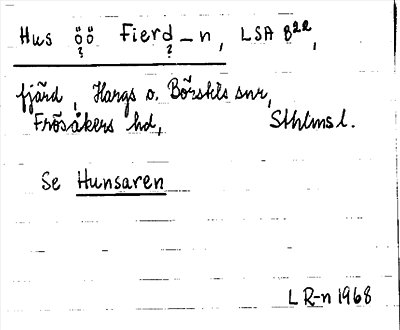 Hus öö Fierd_n, LSA B²²,
? ?
fjärd, Hargs o. Börstils snr,
Frösåkers hd, Sthlms l.
Se Hunsaren
L R-n 1968